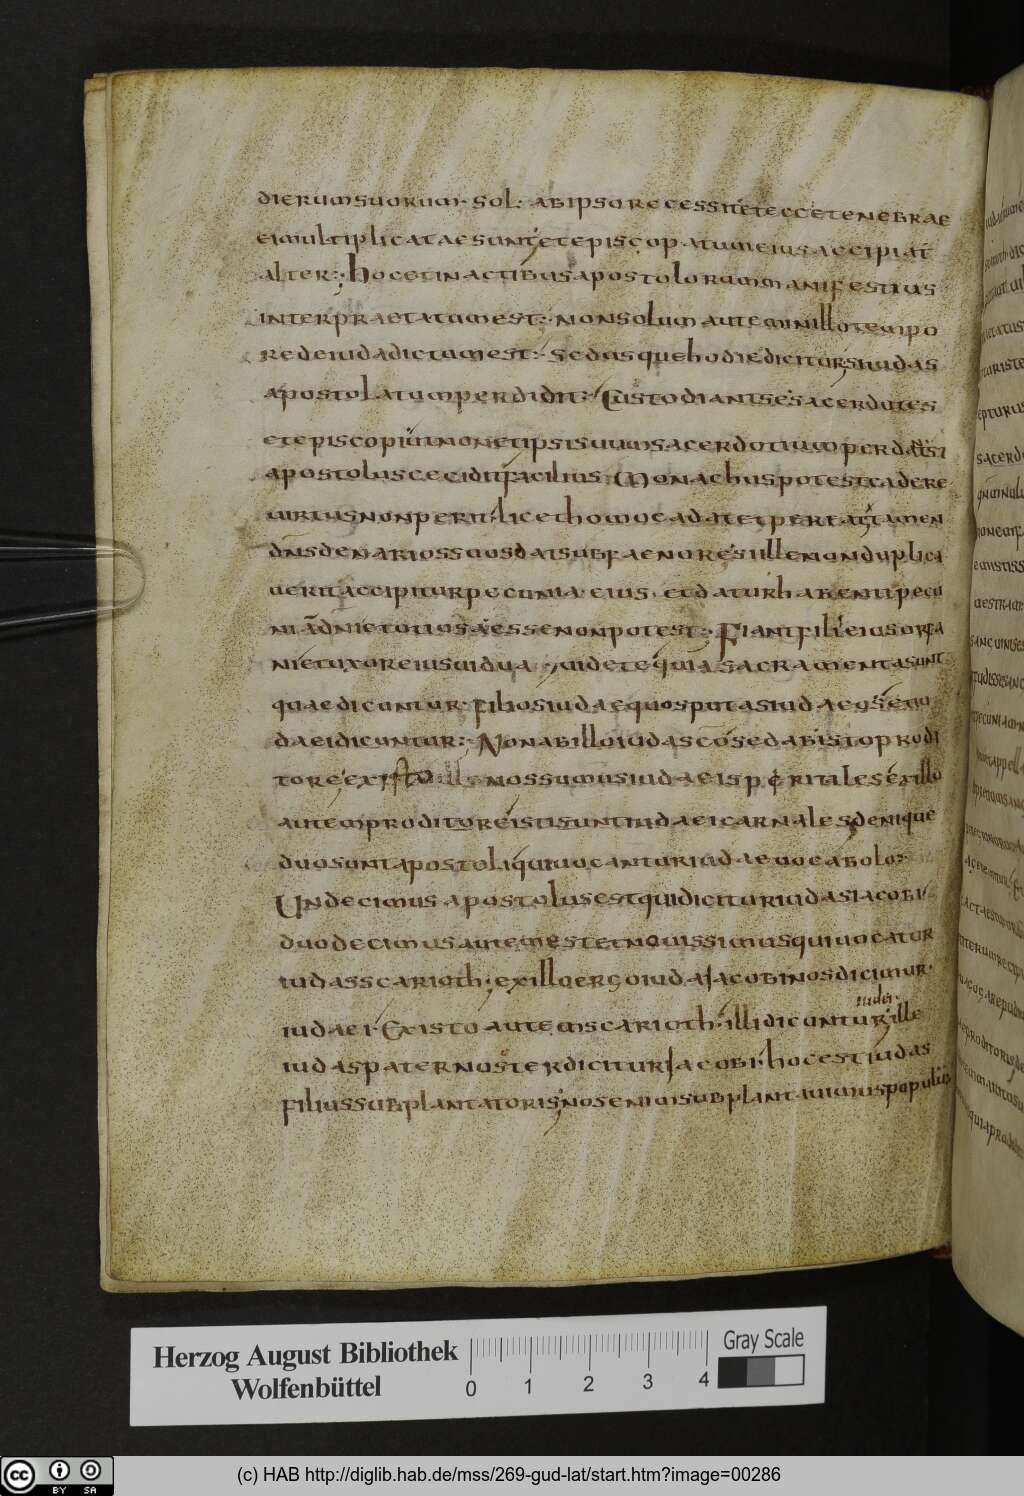 dierum suorum. Sol. ab ipso recessit et ecce tenebrae
ei multiplicatae sunt, et episcopatum eius accipiat
alter; hoc et in actibus apostolorum manifestius
interpraetatum est; non solum autem in illo tempo
re de iuda dictum est; Sed usque hodie dicitur; si iudas
apostolatum perdidit; Custodiant se sacerdotes
et episcopi ut non et ipsi suum sacerdotium perdat; Si
apostolus cecidit, facilius monachus potest cadere
uirtus non perit. licet homo cadat et pereat; tamen
dns denarios suos dat sub faenore si ille non duplica
uerit accipitur pecunia eius. et datur habenti pecu
niā dni et otiosa esse non potest; Fiant filii eius orfa
ni et uxor eius uidua; uidete quia sacramenta sunt
quae dicuntur. filios iudae quos putas iudaeos; ex iu
da ei dicuntur; Non ab illo iuda scō sed ab isto prodi
tore; ex isto nos sumus iudaei spiritales; ex illo
autem proditore isti sunt iudaei carnales, denique
duo sunt apostoli qui uocantur iudae uocabolo;
Undecimus apostolus est qui dicitur iudas iacobi.
duodecimus autem est et nouissimus qui uocatur
iudas scarioth; ex illo ergo iuda iacobi nos dicimur.
iudei.
iudaei. Ex isto autem scarioth. illi dicuntur; ille
iudas pater noster dicitur iacobi. hoc est iudas
filius subplantatoris, nos enim subplantauimus populum
Herzog August Bibliothek
Wolfenbüttel
0 1 2 3 4
Gray Scale
cc BY SA
(c) HAB http://diglib.hab.de/mss/269-gud-lat/start.htm?image=00286